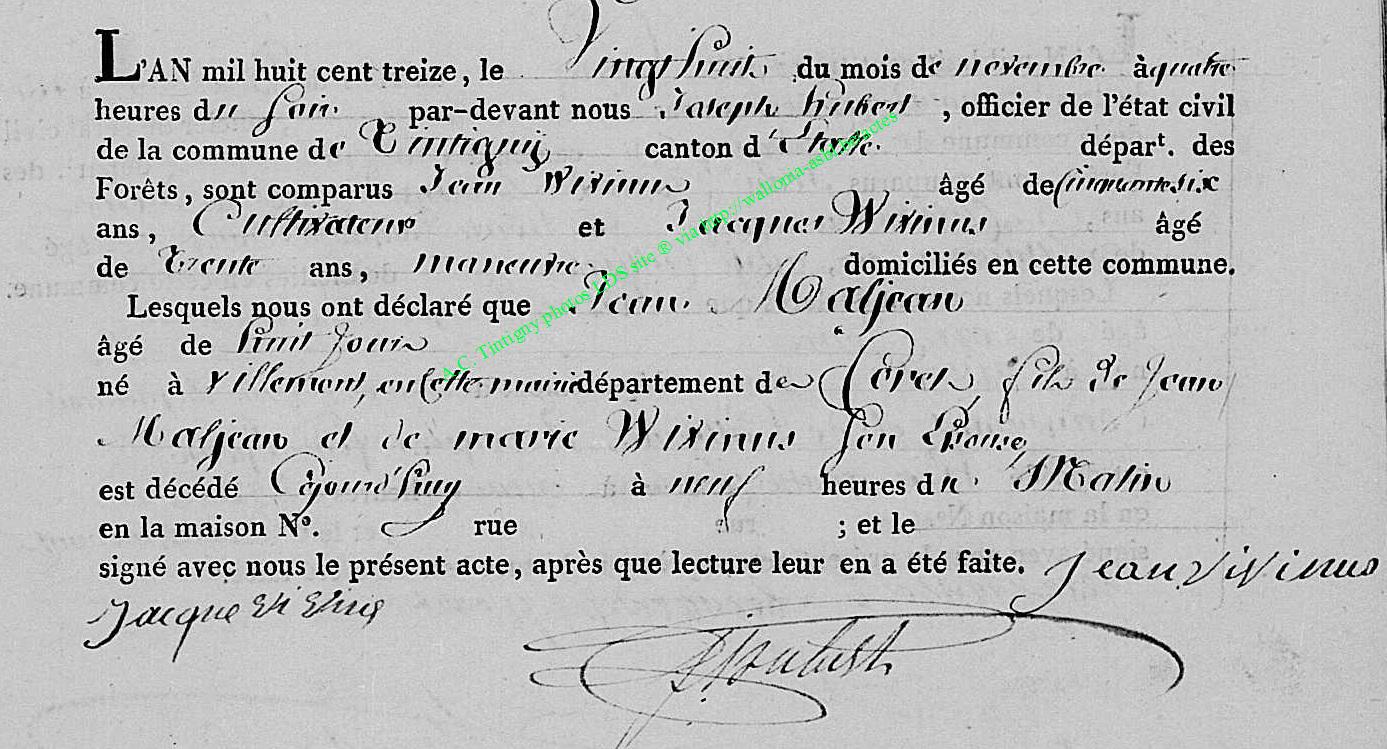 L'AN mil huit cent treize, le Vingt huit du mois de novembre à quatre
heures du Soir par-devant nous Joseph hubert, officier de l'état civil
de la commune de Tintigny canton d'Etalle départ. des
Forêts, sont comparus Jean Wivinus âgé de Cinquante six
ans, Cultivateur et Jacques Wivinus âgé
de Trente ans, maneuvre domiciliés en cette commune.
Lesquels nous ont déclaré que Jean Maljean
âgé de huit Jours
né à villemont, en Cette mairie département des forets, fils de Jean
Maljean et de marie Wivinus Son Epouse,
est décédé Cejourd'huy à neuf heures du Matin
en la maison N°. rue ; et le
signé avec nous le présent acte, après que lecture leur en a été faite. Jean vivinus
Jacque
A.C. Tintigny photos LDS site ® via http://wallonia-asbl.be/actes